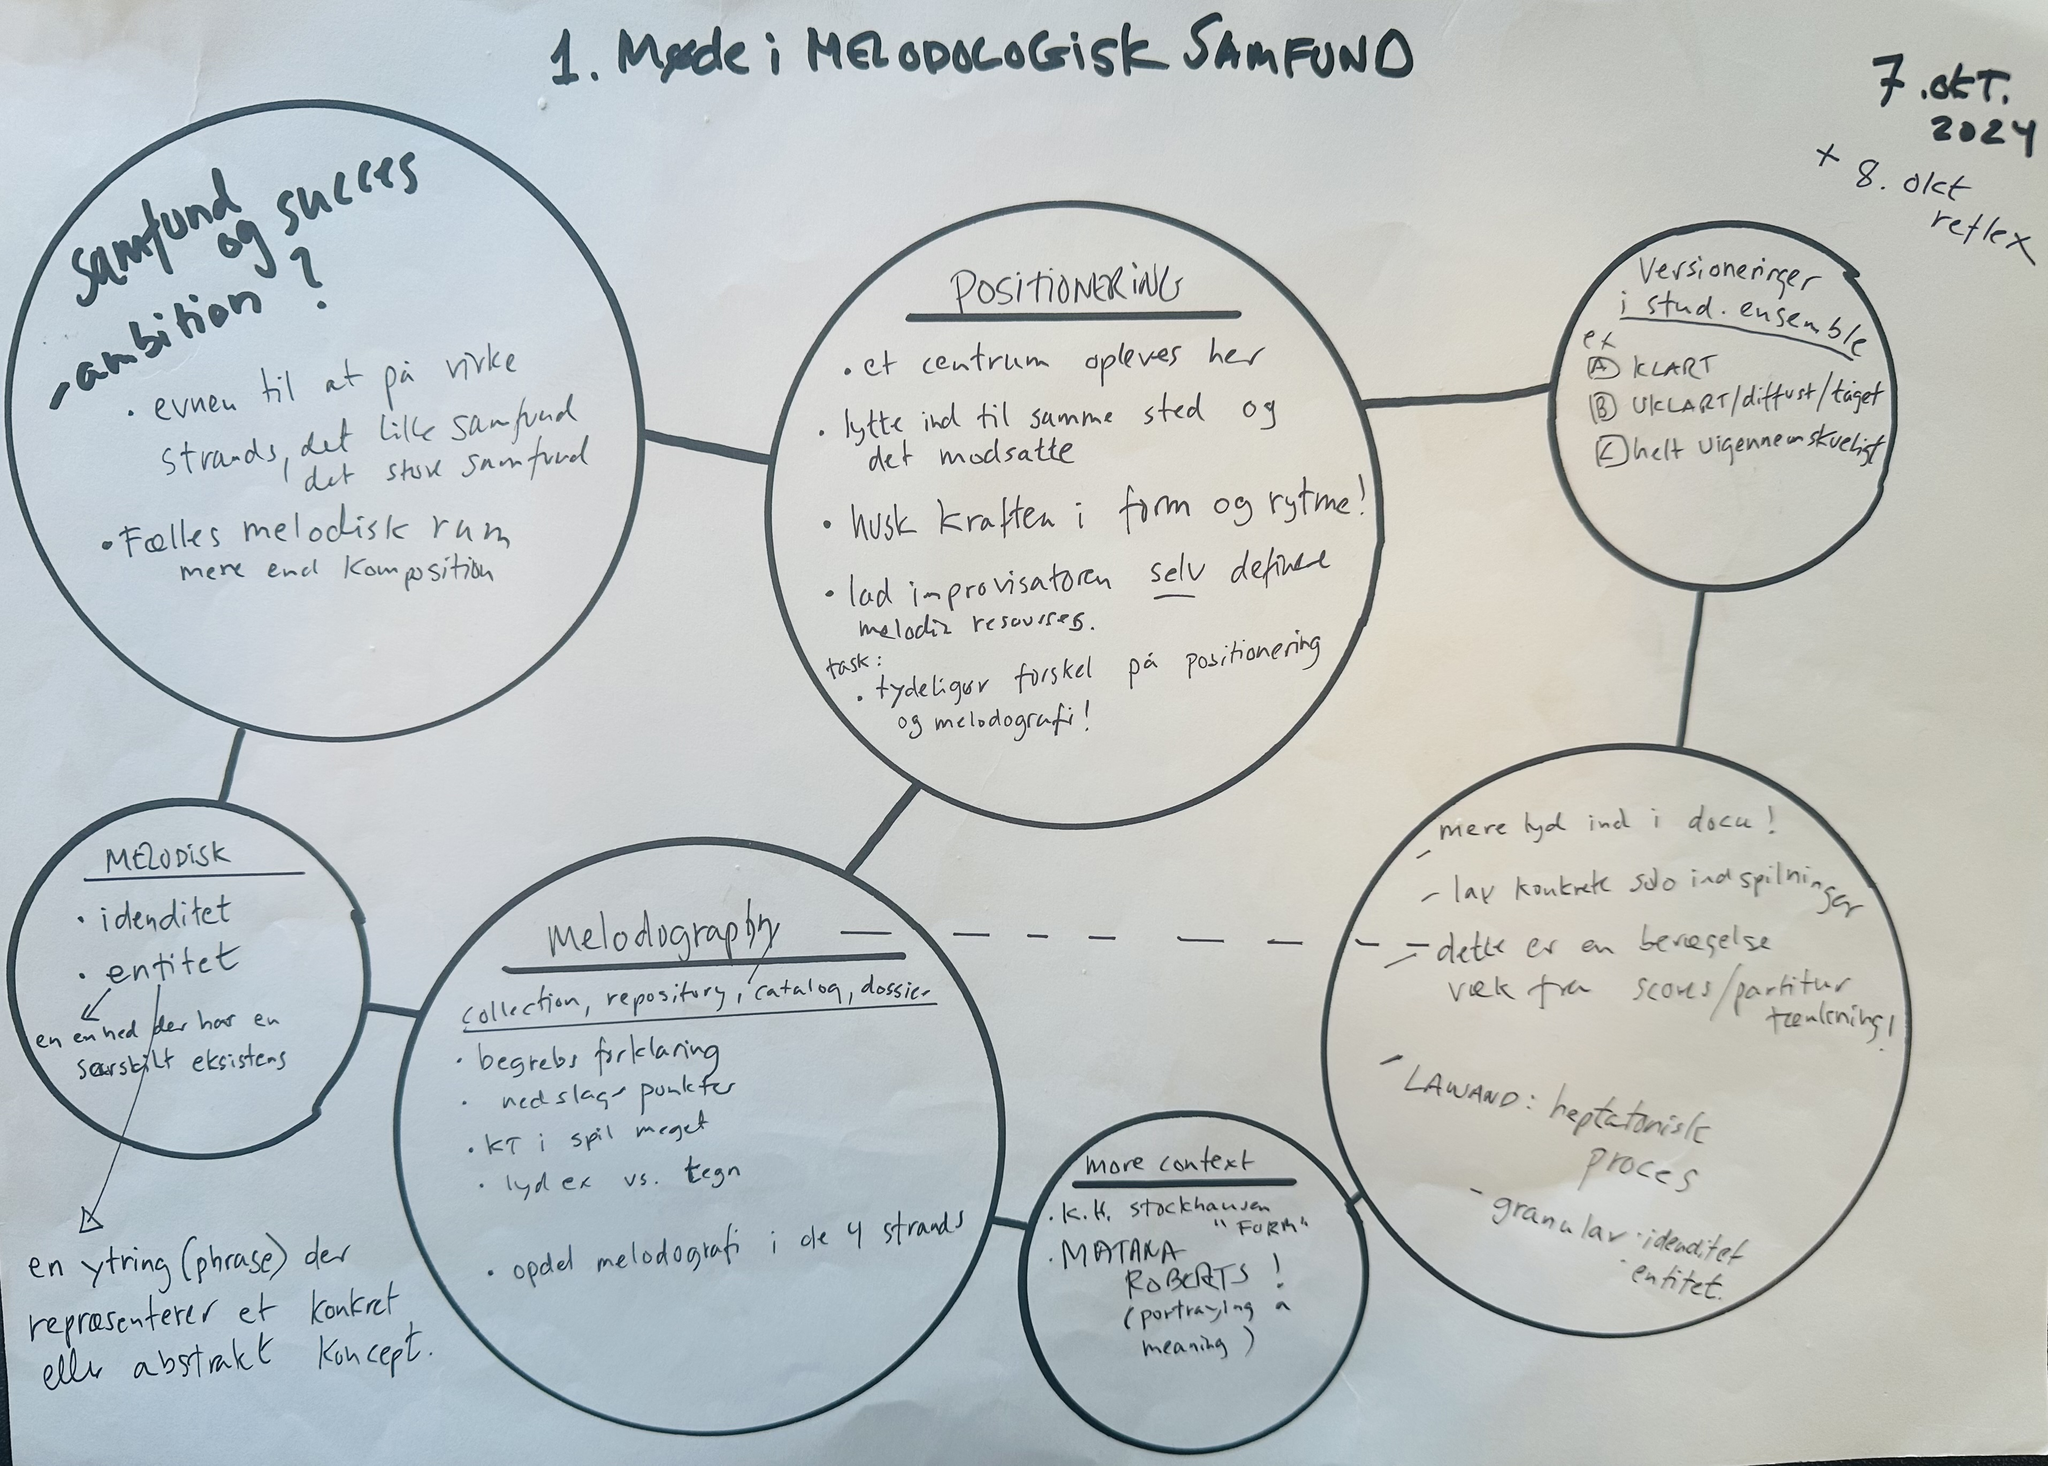 1. Møde i MELODOLOGISK SAMFUND
7. OKT.
2024
+ 8. okt
reflex
Samfund
og succes
- ambition?
• evnen til at på virke
strands, det lille samfund
det store samfund
• Fælles melodisk rum
mere end komposition
POSITIONERING
• et centrum opleves her
• lytte ind til samme sted og
det modsatte
• husk kraften i form og rytme!
• lad improvisatoren selv definere
melodiz resourses.
task:
• tydeligør forskel på positionering
og melodografi!
Versioneringer
i stud. ensemble
ex
A KLART
B UKLART/diffust/tåget
C helt uigennemskueligt
MELODISK
• idenditet
• entitet
en enhed der har en
særskilt eksistens
en ytring (phrase) der
repræsenterer et konkret
eller abstrakt koncept.
Melodography
collection, repository, catalog, dossier
• begrebs forklaring
• nedslags punkter
• KT i spil meget
• lyd ex vs. tegn
• opdel melodografi i de 4 strands
more context
• K.H. Stockhausen
"FORM"
• MATANA
ROBERTS!
(portraying a
meaning)
- mere lyd ind i docu!
- lav konkrete solo indspilninger
- dette er en bevægelse
væk fra scores/partitur
tænkning!
- LAWAND: heptatonisk
proces
- granular • idenditet
• entitet.